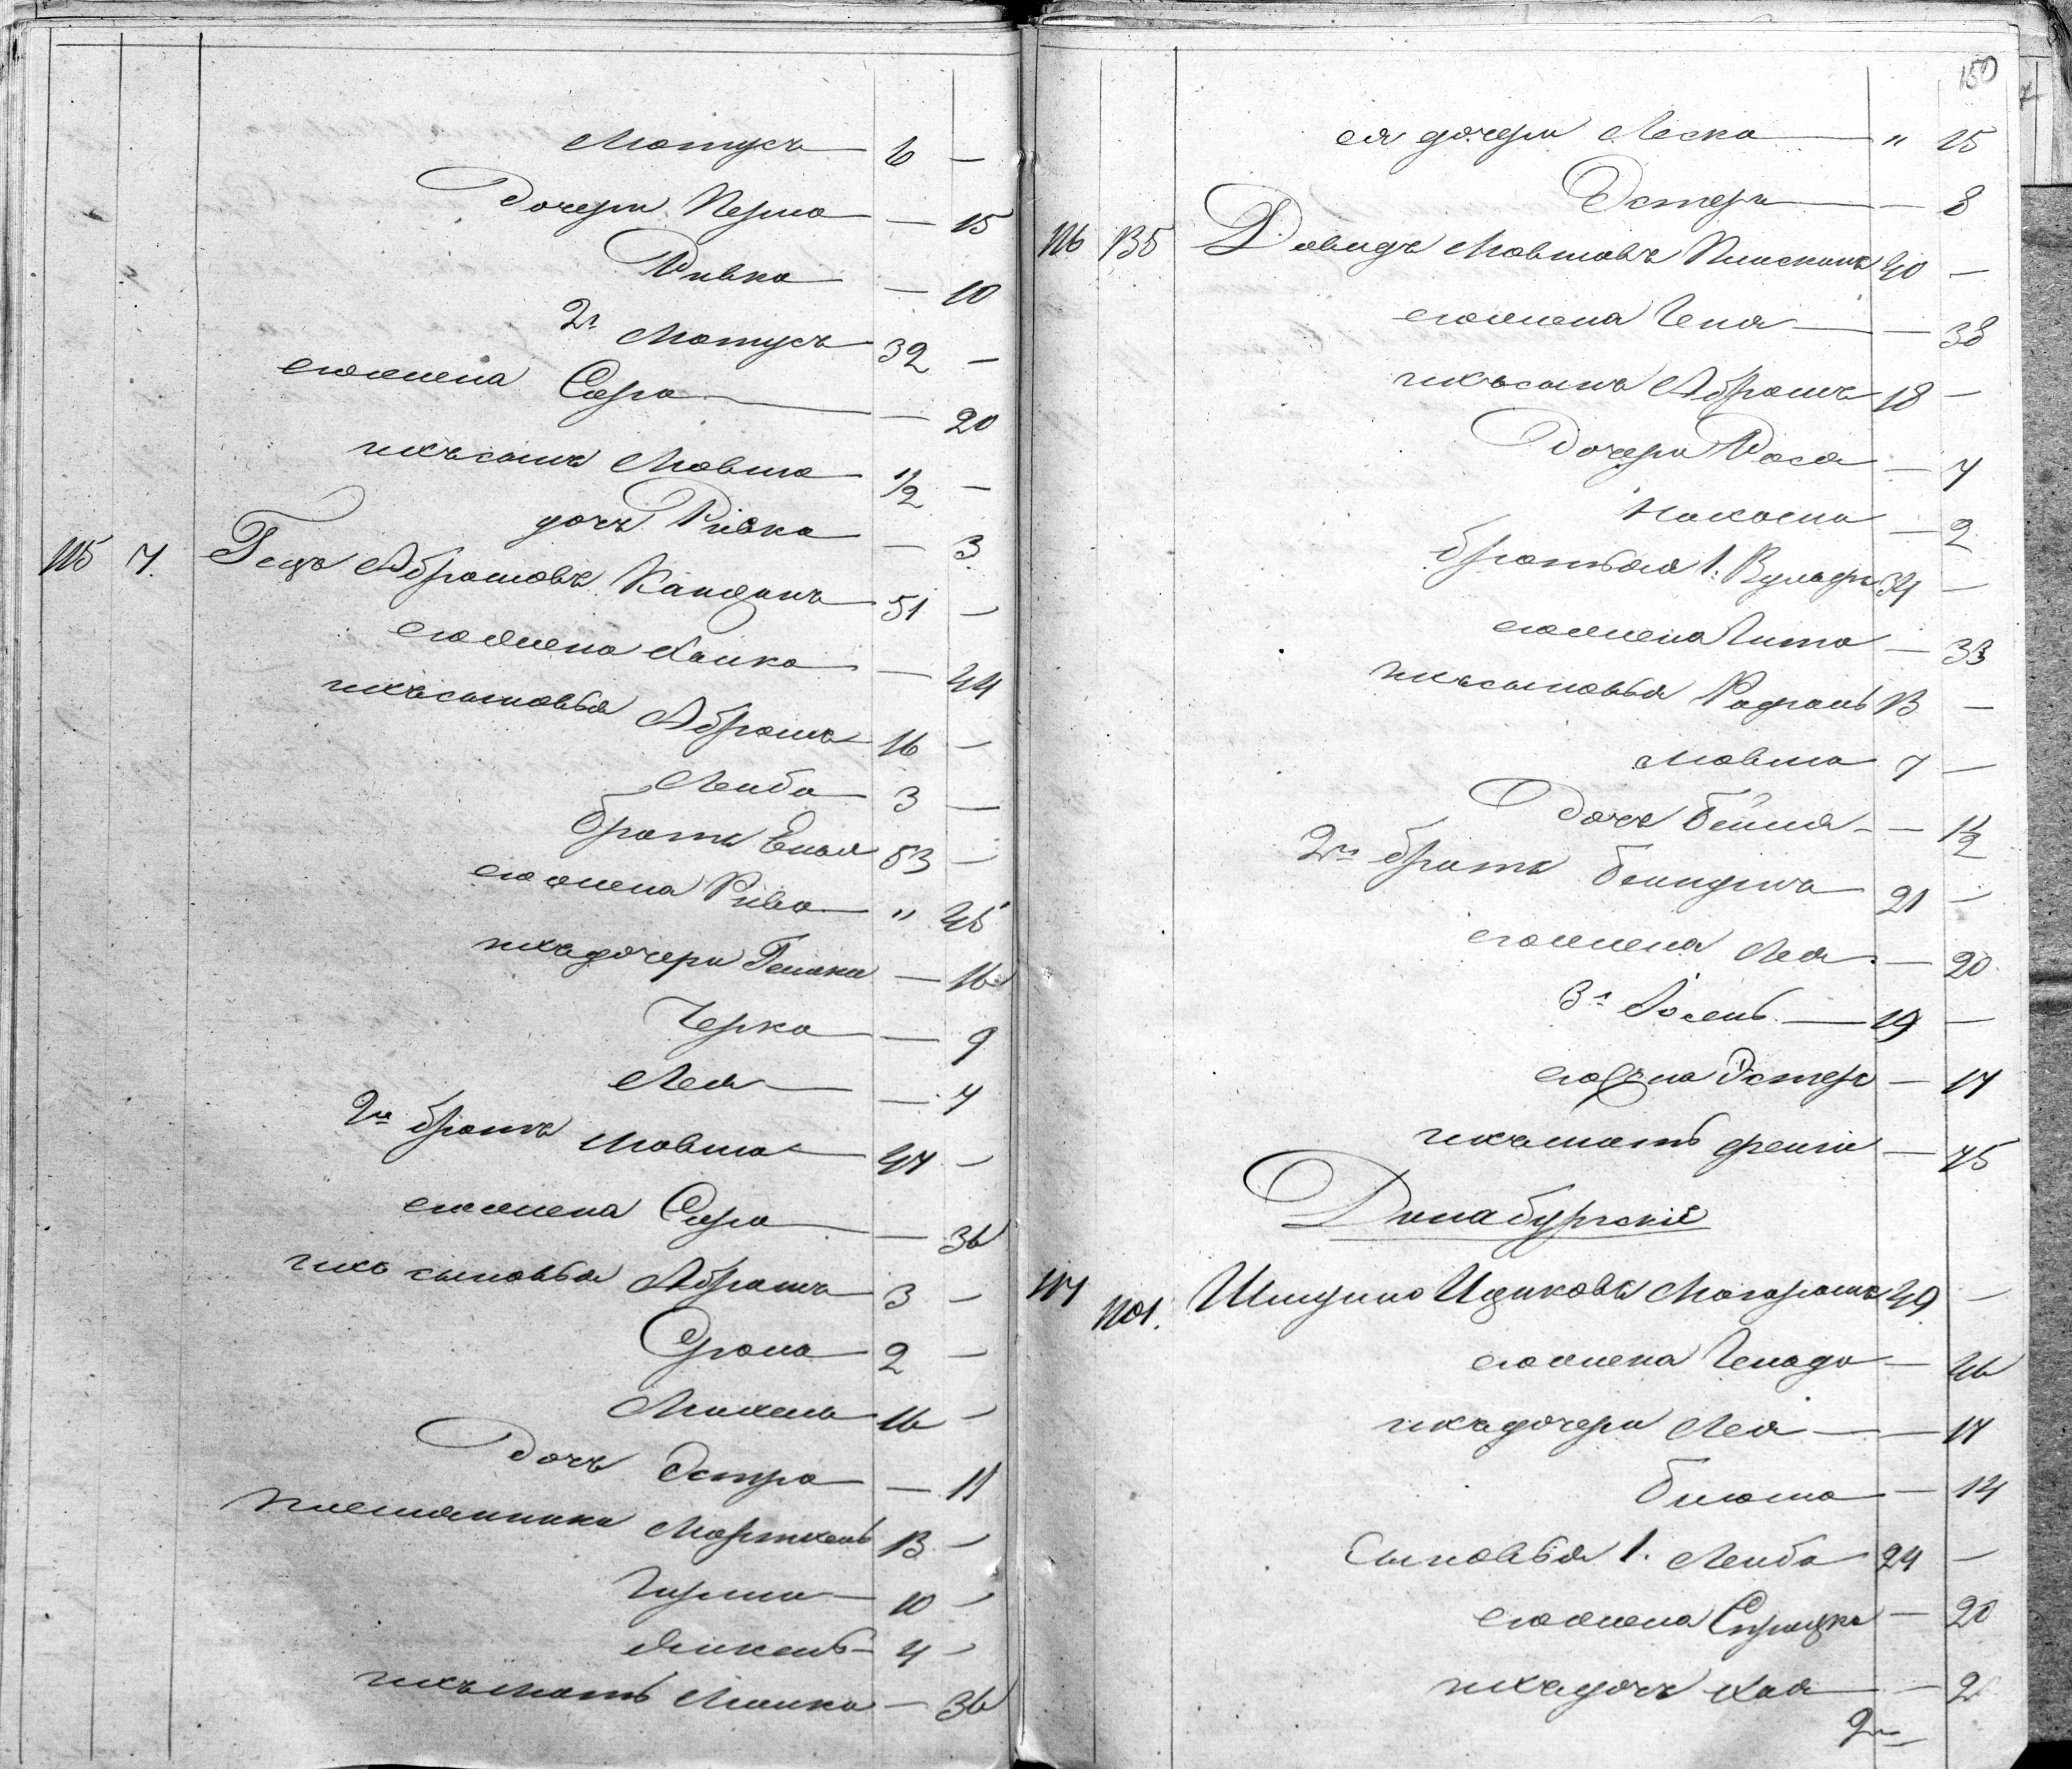 Мотусъ 6 —
Дочери Перла — 15
Ривка — 10
2й Мотусъ 32 —
его жена Сора — 20
ихъ сынъ Мовша 1/2 —
дочь Ривка — 3
115 7. Гецъ Абрамовъ Канданъ 51 —
его жена Ханка — 44
ихъ сыновья Абрамъ 16 —
Лейба 3 —
братъ 53 —
его жена Рива " 45
ихъ дочери Генька — 16
Черка — 9
Лея — 7
2й братъ Мовша 47 —
его жена Сора — 36
ихъ сыновья Абрамъ 3 —
Срола 2 —
Михель 16 —
Дочь Эстра — 11
племянники Мортхель 13 —
Гирша 10 —
4 —
ихъ мать Малка — 36
150
ея дочери Леска " 15
Эстеръ — 8
116 135 Довидъ Мовшовъ 40 —
его жена Геня — 38
ихъ сынъ Абрамъ 18 —
Дочери Роса — 7
Нахома — 2
братья 1. Вульфъ 34 —
его жена Гита — 33
ихъ сыновья Рафаль 13 —
Мовша 7 —
Дочь Бейля — 1 1/2
2й братъ 21 —
его жена Лея — 20
3й Іосель 19 —
его жена Эстеръ — 17
ихъ мать Фейга — 75
Динабургскіе
117 1101. Ицковъ Магарамъ 49 —
его жена Генада — 46
ихъ дочери Лея — 17
Блюма — 14
Сыновья 1. Лейба 24 —
его жена Спринцка — 20
ихъ дочь Хая — 2
2й